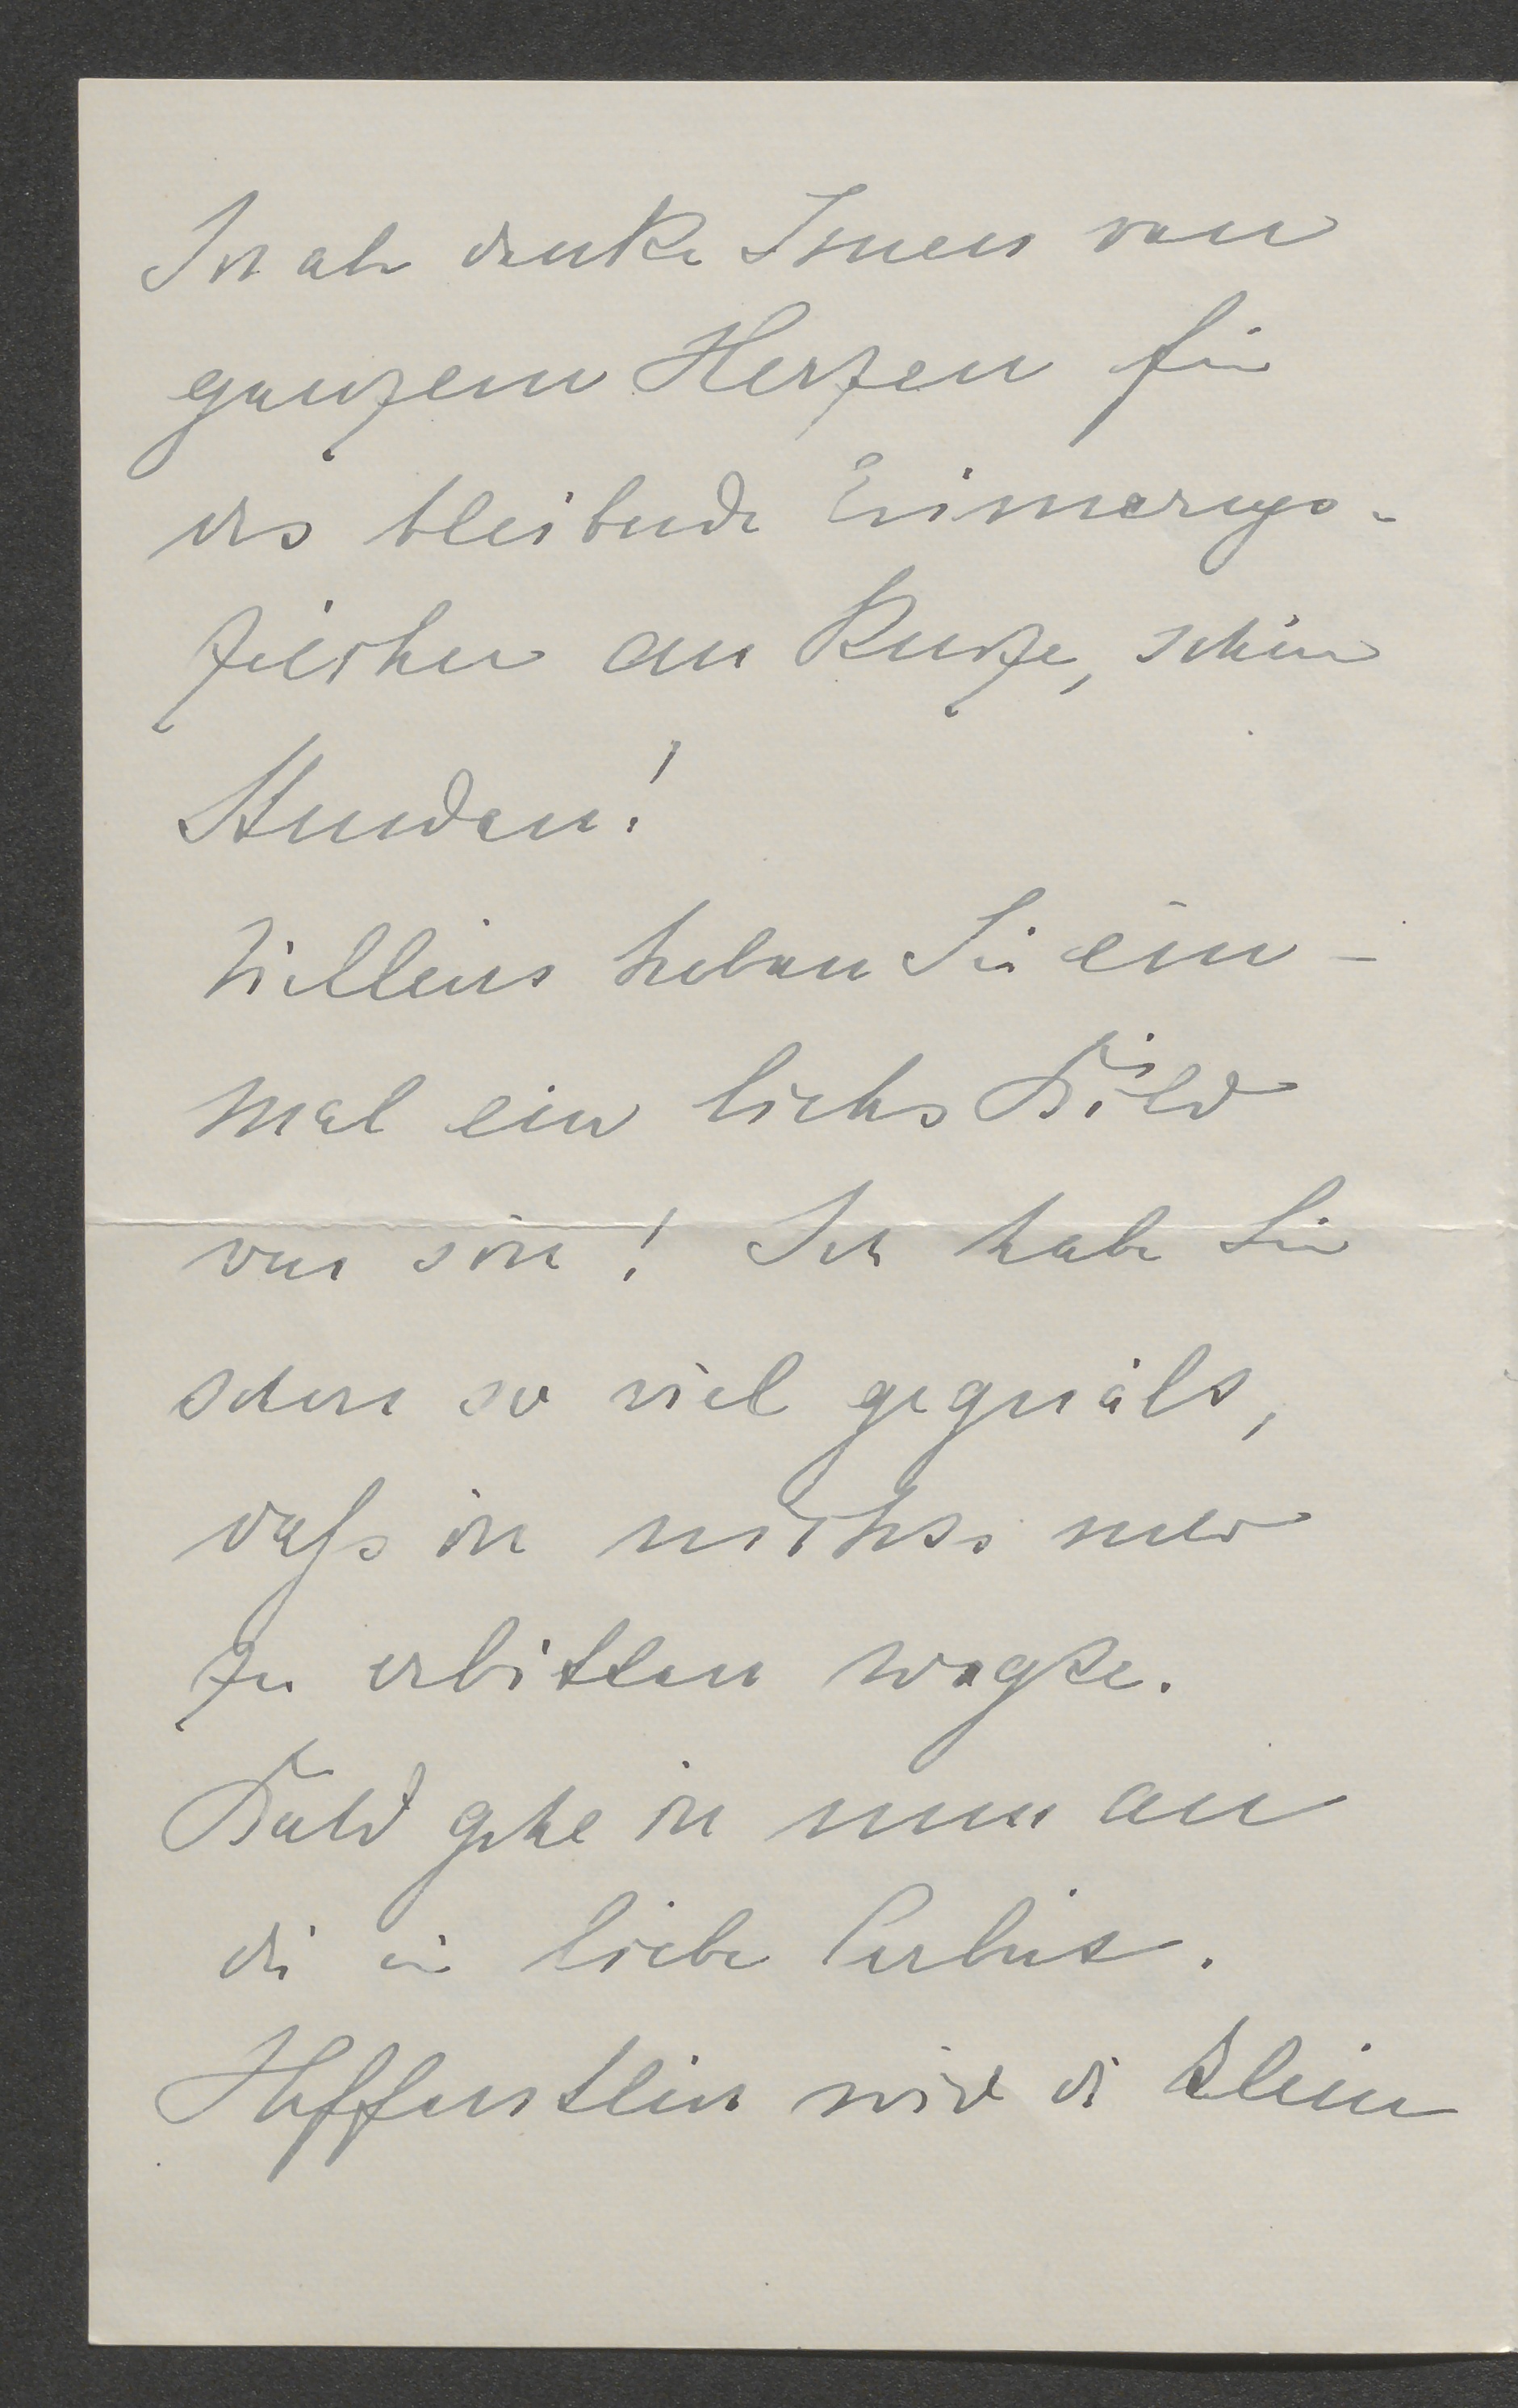 Ich aber danke Ihnen von
ganzem Herzen für
das bleibende Erinnerungs-
zeichen an kurze, schöne
Stunden!
Vielleicht haben Sie ein-
mal ein lichtes Bild
von sich! Ich habe Sie
schon so viel gequält,
dass ich nichts mehr
zu erbitten wagte.
Bald gehe ich nun an
die liebe Arbeit.
Hoffentlich wird die kleine